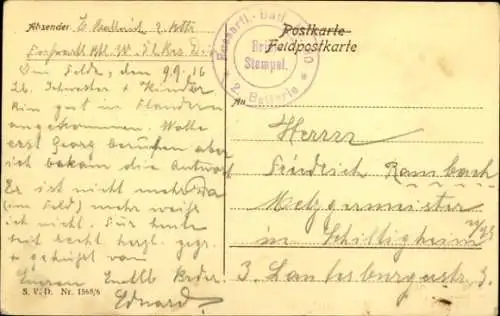 Absender: E.
Im Felde, den 9.9.16
Lb. Schwester + Kinder
Bin gut in Flandern
angekommen. Wollte
erst Georg besuchen aber
ich bekam die Antwort
Er ist nicht mehr da
(im Feld) mehr weiß
ich nicht. Für heute
seit recht herzl. gegr.
+ geküßt von
Eurem Bruder
Eduard
S. V. D. Nr. 1568/6
Fussartl.-Batl.
Brief
Stempel.
2. Batterie
Postkarte
Feldpostkarte
An
Herrn
Friedrich Rambach
Metzgermeister
in Schiltigheim
3. Lauterburgerstr. 3.